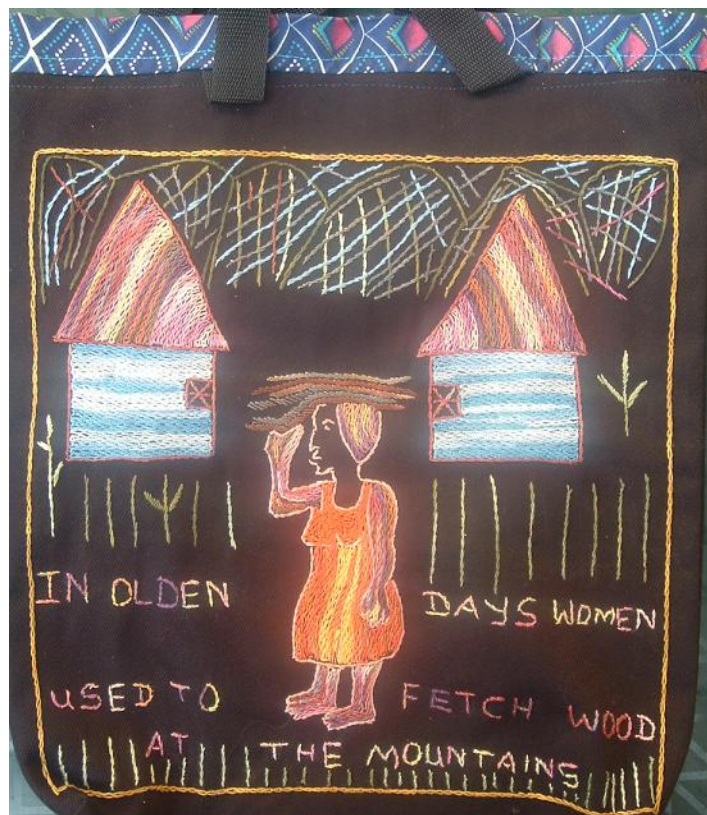 IN OLDEN DAYS WOMEN
USED TO FETCH WOOD
AT THE MOUNTAINS